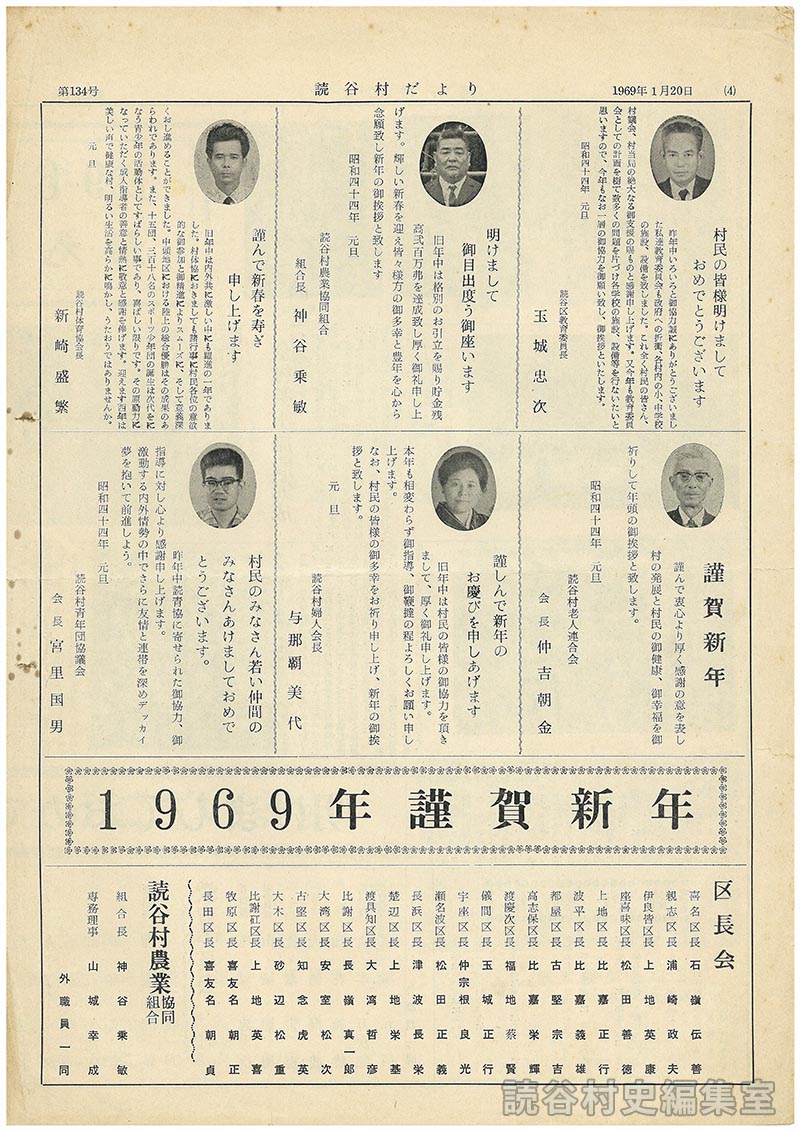 第134号
読谷村だより
1969年1月20日
(4)
村民の皆様明けまして
おめでとうございます
昨年中いろいろと御協力誠にありがとうございまし
た私達教育委員会も政府への折衝、各村内の小、中学校
の施設、設備を致しました。これ全く村民の皆さん、
村議会、村当局の絶大なる御支援の賜ものと感謝申し上げます。又今年も教育委員
会としての計画を樹て数多くの問題を片づけ各学校の施設、設備等を行ないたいと
思いますので、今年もなお一層の御協力を御願い致し、御挨拶といたします。
昭和四十四年 元旦
読谷区教育委員長
玉城忠次
明けまして
御目出度う御座います
旧年中は格別のお引立を賜り貯金残
高弐百万弗を達成致し厚く御礼申し上
げます。輝しい新春を迎え皆々様方の御多幸と豊年を心から
念願致し新年の御挨拶と致します
昭和四十四年 元旦
読谷村農業協同組合
組合長 神谷乗敏
謹んで新春を寿ぎ
申し上げます
旧年中は内外共に激しい中にも躍進の一年でありま
した。村体協におきましても諸行事に村民各位の意欲
的な御参加と御精進によりスムーズに、そして意義深
くおし進めることができました。中頭地区における陸上の総合優勝はその成果のあ
らわれであります。また、十五団、三百十八名のスポーツ少年団の誕生は次代をに
なう青少年の活動体としてすばらしい事であり、喜ばしい限りです。その原動力に
なっていただく成人指導者の善意と情熱に敬意と感謝を捧げます。迎えます酉年は
美しい声で健康な村、明るい生活を高らかに鳴かし、うたおうではありませんか。
元旦
読谷村体育協会長
新崎盛繁
謹賀新年
謹んで衷心より厚く感謝の意を表し
村の発展と村民の御健康、御幸福を御
祈りして年頭の御挨拶と致します。
昭和四十四年 元旦
読谷村老人連合会
会長 仲吉朝金
謹しんで新年の
お慶びを申しあげます
旧年中は村民の皆様の御協力を頂き
まして、厚く御礼申し上げます。
本年も相変わらず御指導、御鞭撻の程よろしくお願い申し
上げます。
なお、村民の皆様の御多幸をお祈り申し上げ、新年の御挨
拶と致します。
元旦
読谷村婦人会長
与那覇美代
村民のみなさん若い仲間の
みなさんあけましておめで
とうございます。
昨年中読青協に寄せられた御協力、御
指導に対し心より感謝申し上げます。
激動する内外情勢の中でさらに友情と連帯を深めデッカイ
夢を抱いて前進しよう。
昭和四十四年 元旦
読谷村青年団協議会
会長 宮里国男
1969年謹賀新年
区長会
喜名区長 石嶺伝善
親志区長 浦崎政夫
伊良皆区長 上地英康
座喜味区長 松田善徳
上地区長 比嘉正行
波平区長 比嘉義雄
都屋区長 古堅宗吉
高志保区長 比嘉栄輝
渡慶次区長 福地蔡賢
儀間区長 玉城正行
宇座区長 仲宗根良光
瀬名波区長 松田正義
長浜区長 津波長栄
楚辺区長 上地栄基
渡具知区長 大湾哲彦
比謝区長 長嶺真一郎
大湾区長 安室松次
古堅区長 知念虎英
大木区長 砂辺松重
比謝矼区長 上地英喜
牧原区長 喜友名朝正
長田区長 喜友名朝貞
読谷村農業協同組合
組合長 神谷乗敏
専務理事 山城幸成
外職員一同
読谷村史編集室